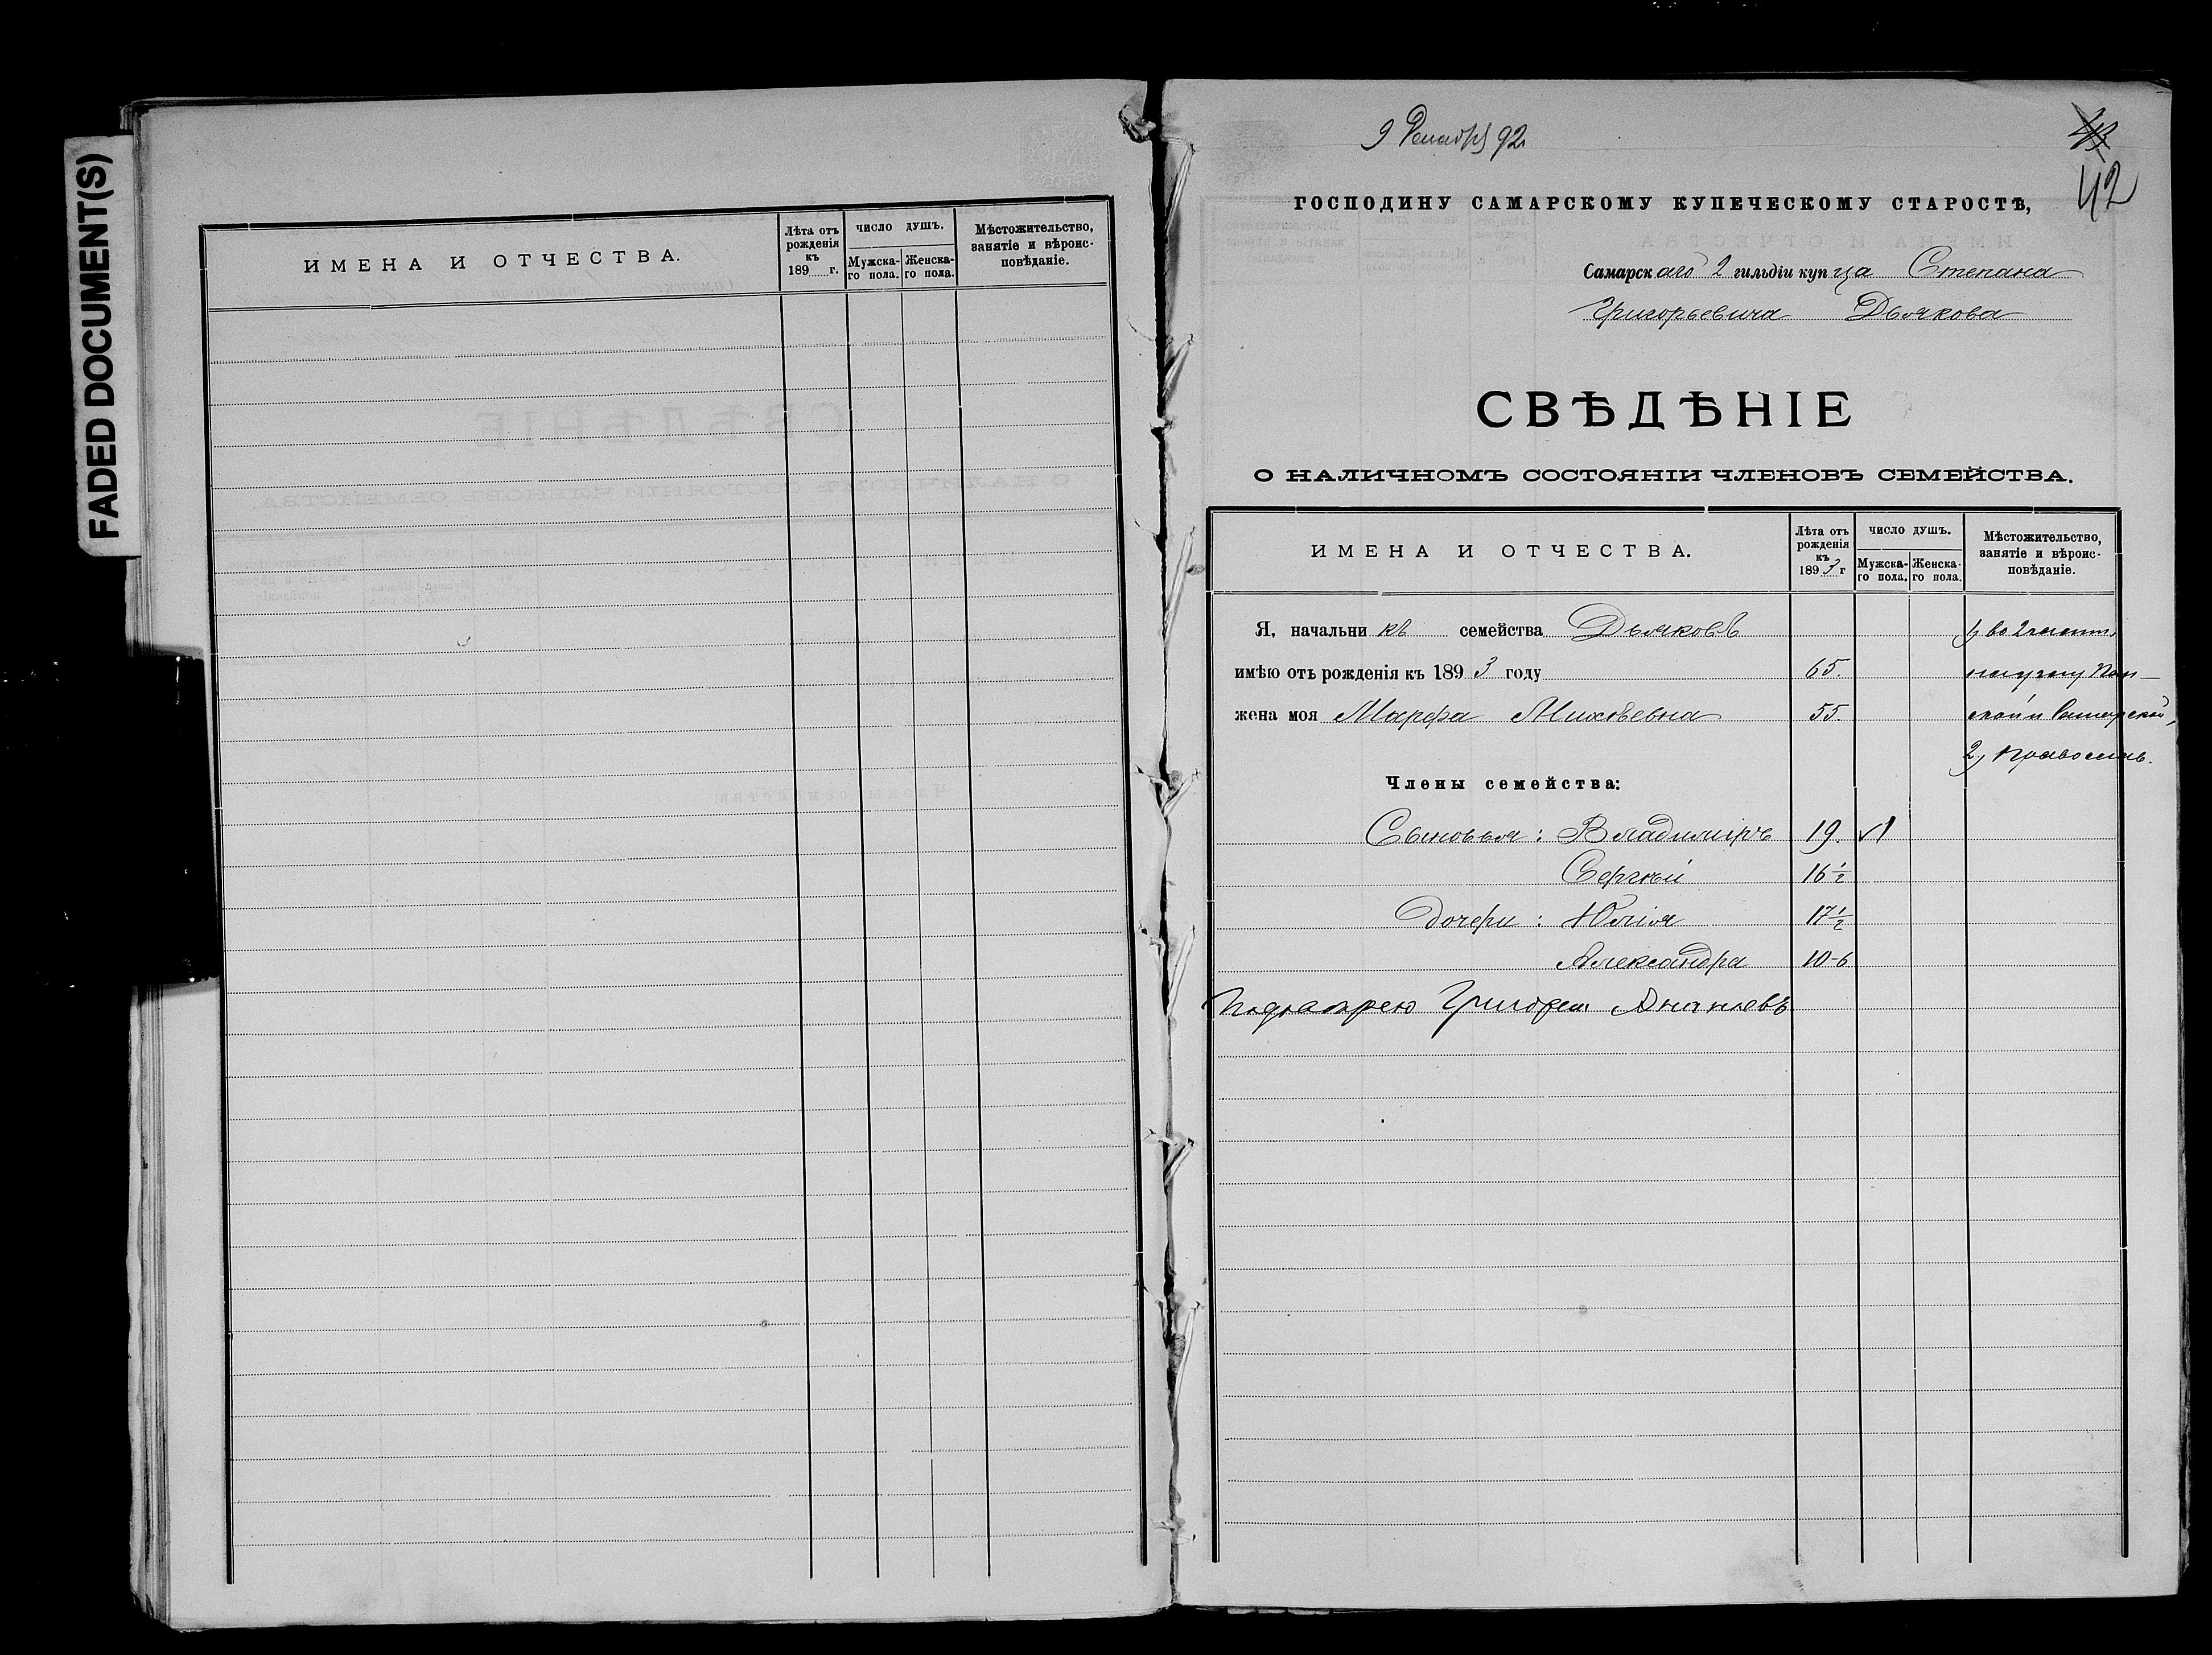 FADED DOCUMENT(S)
ИМЕНА И ОТЧЕСТВА.
Лѣта отъ рожденія къ 189 г.
ЧИСЛО ДУШЪ.
Мужска-го пола.
Женска-го пола.
Мѣстожительство, занятіе и вѣроис-повѣданіе.
9 Декабря 92
43
42
ГОСПОДИНУ САМАРСКОМУ КУПЕЧЕСКОМУ СТАРОСТѢ,
Самарскаго 2 гильдіи купца Степана
Григорьевича Дьякова
СВѢДѢНІЕ
О НАЛИЧНОМЪ СОСТОЯНІИ ЧЛЕНОВЪ СЕМЕЙСТВА.
ИМЕНА И ОТЧЕСТВА.
Лѣта отъ рожденія къ 1893 г
ЧИСЛО ДУШЪ.
Мужска-го пола.
Женска-го пола.
Мѣстожительство, занятіе и вѣроис-повѣданіе.
Я, начальникъ семейства Дьяковъ 1) во 2 части,
имѣю отъ рожденія къ 1893 году 65.
жена моя Марфа 55. и Самарской,
2) Православ.
Члены семейства:
Сыновья: Владиміръ 19. √1
Сергѣй 16 1/2
Дочери: Юлія 17 1/2
Александра 10-6
Григорей Ананьевъ